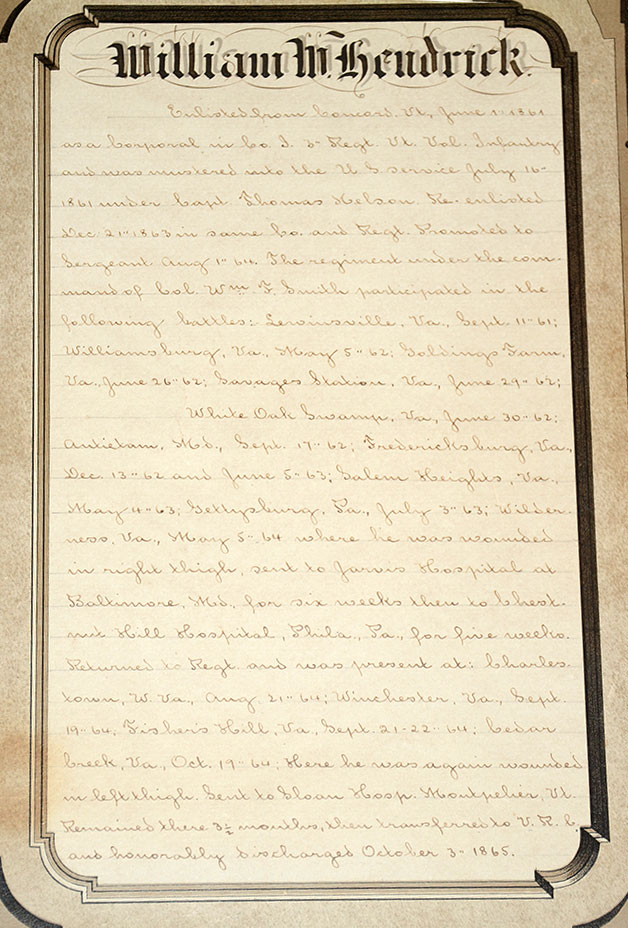 William W. Hendrick.
Enlisted from Concord, Vt., June 1" 1861
as a Corporal in Co. I. 3" Regt. Vt. Vol. Infantry
and was mustered into the U. S service July 16"
1861 under Capt. Thomas Nelson. Re-enlisted
Dec. 21" 1863 in same Co. and Regt. Promoted to
Sergeant Aug 1" 64. The regiment under the com-
mand of Col. Wm. F. Smith participated in the
following battles: Lewinsville, Va., Sept. 11" 61;
Williamsburg, Va., May 5" 62; Goldings Farm,
Va., June 26" 62; Savages Station, Va., June 29" 62;
White Oak Swamp, Va., June 30" 62;
Antietam, Md., Sept. 17" 62; Fredericksburg, Va.,
Dec. 13" 62 and June 5" 63; Salem Heights, Va.,
May 4" 63; Gettysburg, Pa., July 3" 63; Wilder-
ness, Va., May 5" 64 where he was wounded
in right thigh, sent to Jarvis Hospital at
Baltimore, Md., for six weeks then to Chest-
nut Hill Hospital, Phila., Pa., for five weeks.
Returned to Regt. and was present at: Charles-
town, W. Va., Aug. 21" 64; Winchester, Va., Sept.
19" 64; Fisher's Hill, Va., Sept. 21-22" 64; Cedar
Creek, Va., Oct. 19" 64; Here he was again wounded
in left thigh. Sent to Sloan Hosp. Montpelier, Vt.
Remained there 3½ months, then transferred to V. R. C.
and honorably discharged October 3" 1865.